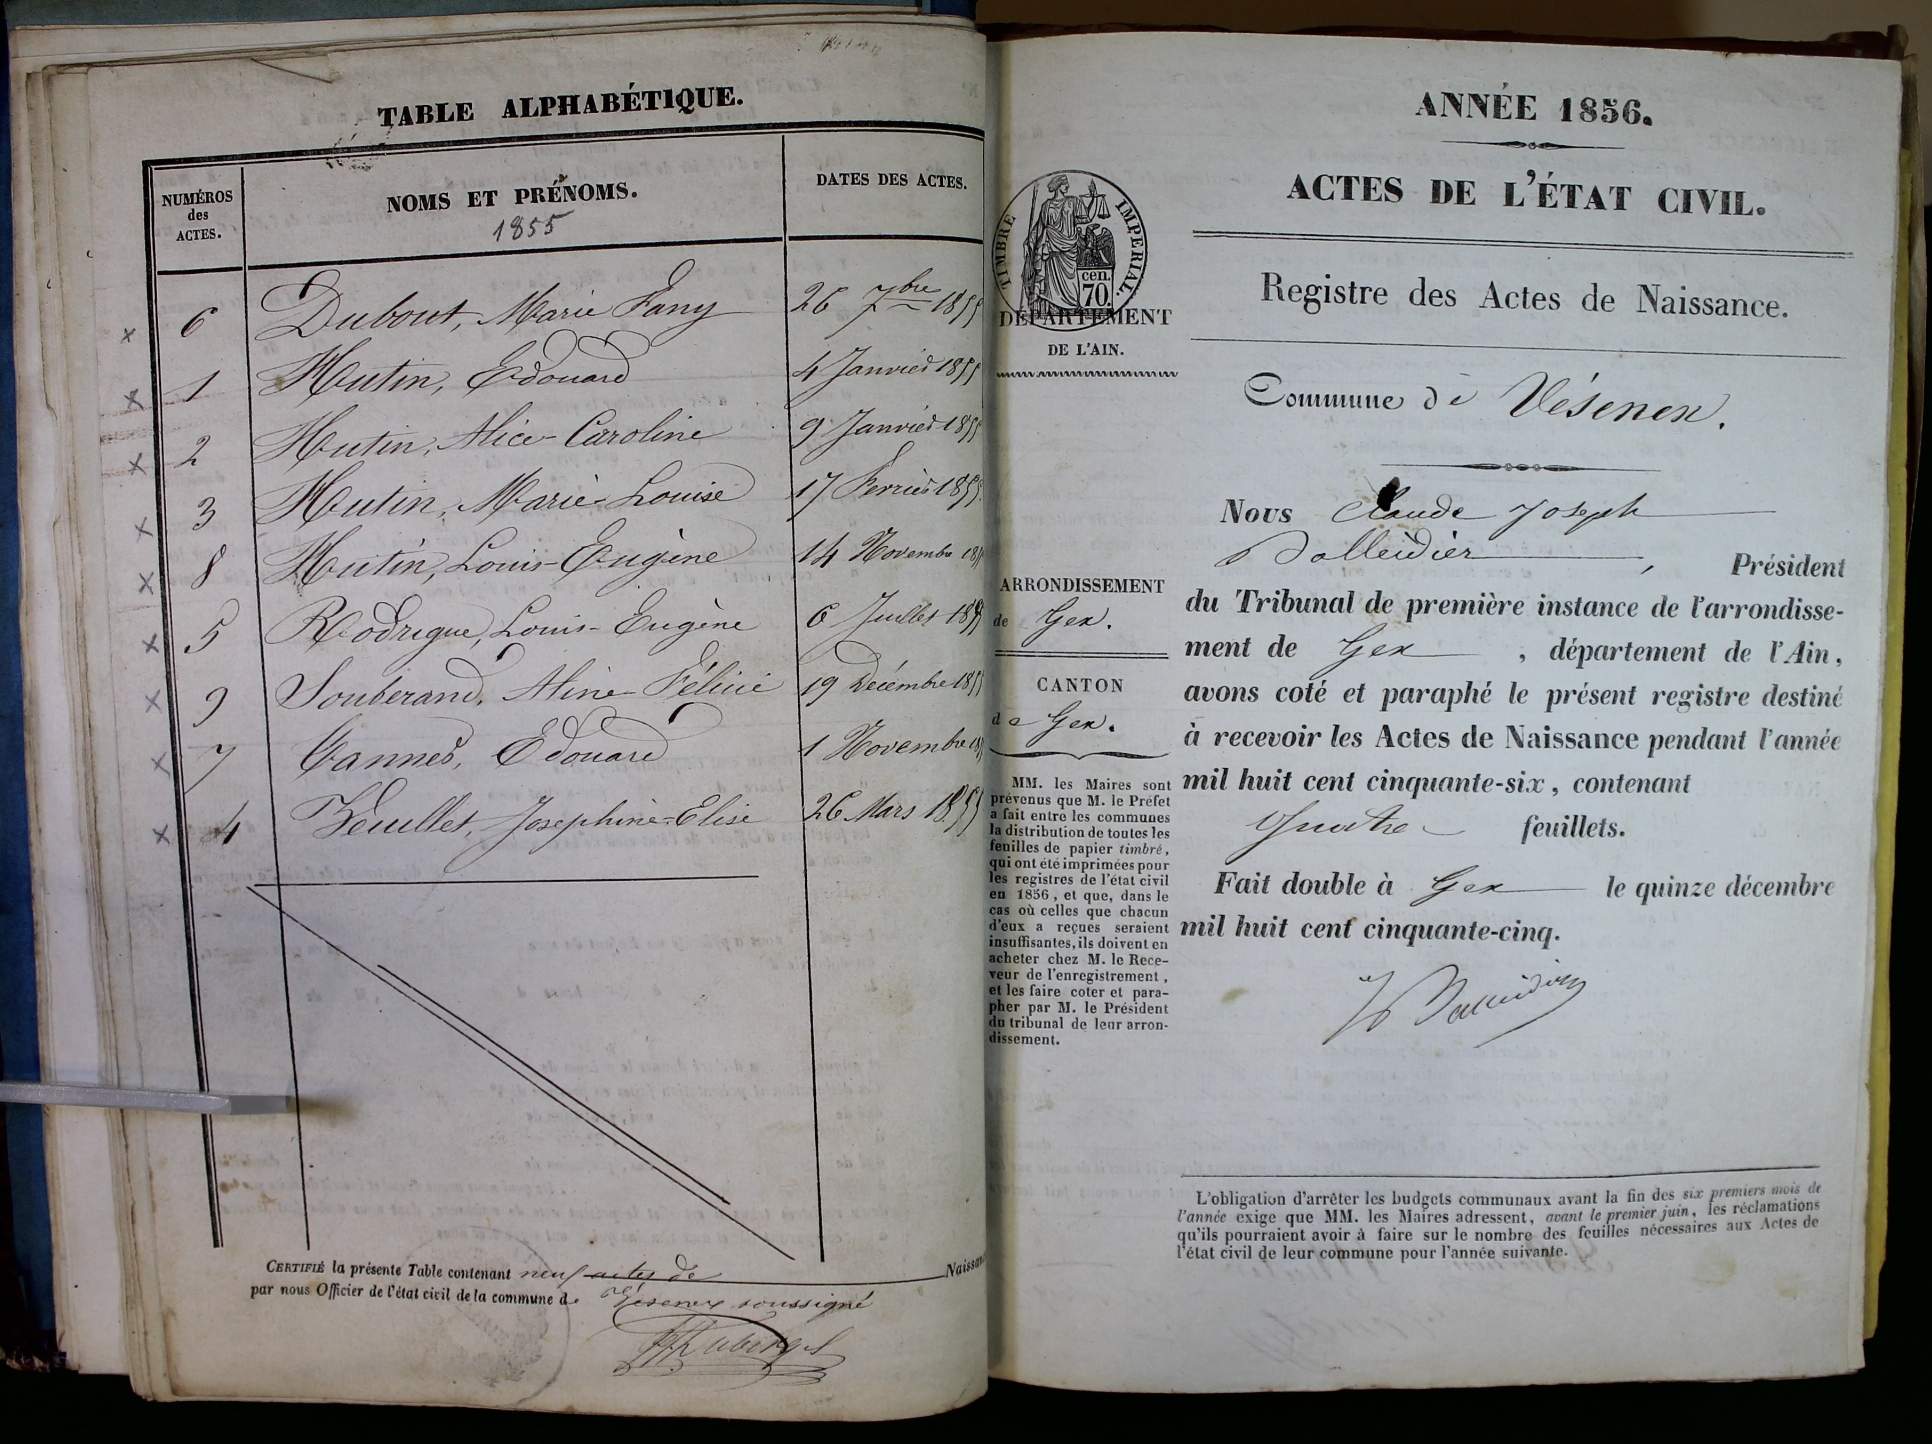 TABLE ALPHABÉTIQUE.
NUMÉROS des ACTES. NOMS ET PRÉNOMS. DATES DES ACTES.
1855
6 Dubout, Marie Fany 26 7bre 1855
1 Hutin, Edouard 4 Janvier 1855
2 Hutin, Alice-Caroline 9 Janvier 1855
3 Hutin, Marie-Louise 17 Fevrier 1855
8 Hutin, Louis-Eugène 14 Novembre 1855
5 Rodrigue, Louis-Eugène 6 Juillet 1855
9 Souberand, Aline-Félicie 19 Décembre 1855
7 Vannes, Edouard 1 Novembre 18
4 Zeullet, Josephine-Elise 26 Mars 1855
CERTIFIÉ la présente Table contenant neuf actes de Naissan
par nous Officier de l'état civil de la commune de Vésenex soussigné
ANNÉE 1856.
ACTES DE L'ÉTAT CIVIL.
Registre des Actes de Naissance.
TIMBRE IMPERIAL.
cen.
70.
DÉPARTEMENT
DE L'AIN.
Commune de Vésenex.
Nous Claude Joseph
Balleidier, Président
du Tribunal de première instance de l'arrondisse-
ment de Gex, département de l'Ain,
avons coté et paraphé le présent registre destiné
à recevoir les Actes de Naissance pendant l'année
mil huit cent cinquante-six, contenant
Quatre feuillets.
Fait double à Gex le quinze décembre
mil huit cent cinquante-cinq.
Balleidier
ARRONDISSEMENT
de Gex.
CANTON
de Gex.
MM. les Maires sont
prévenus que M. le Préfet
a fait entre les communes
la distribution de toutes les
feuilles de papier timbré,
qui ont été imprimées pour
les registres de l'état civil
en 1856, et que, dans le
cas où celles que chacun
d'eux a reçues seraient
insuffisantes, ils doivent en
acheter chez M. le Rece-
veur de l'enregistrement,
et les faire coter et para-
pher par M. le Président
du tribunal de leur arron-
dissement.
L'obligation d'arrêter les budgets communaux avant la fin des six premiers mois de
l'année exige que MM. les Maires adressent, avant le premier juin, les réclamations
qu'ils pourraient avoir à faire sur le nombre des feuilles nécessaires aux Actes de
l'état civil de leur commune pour l'année suivante.